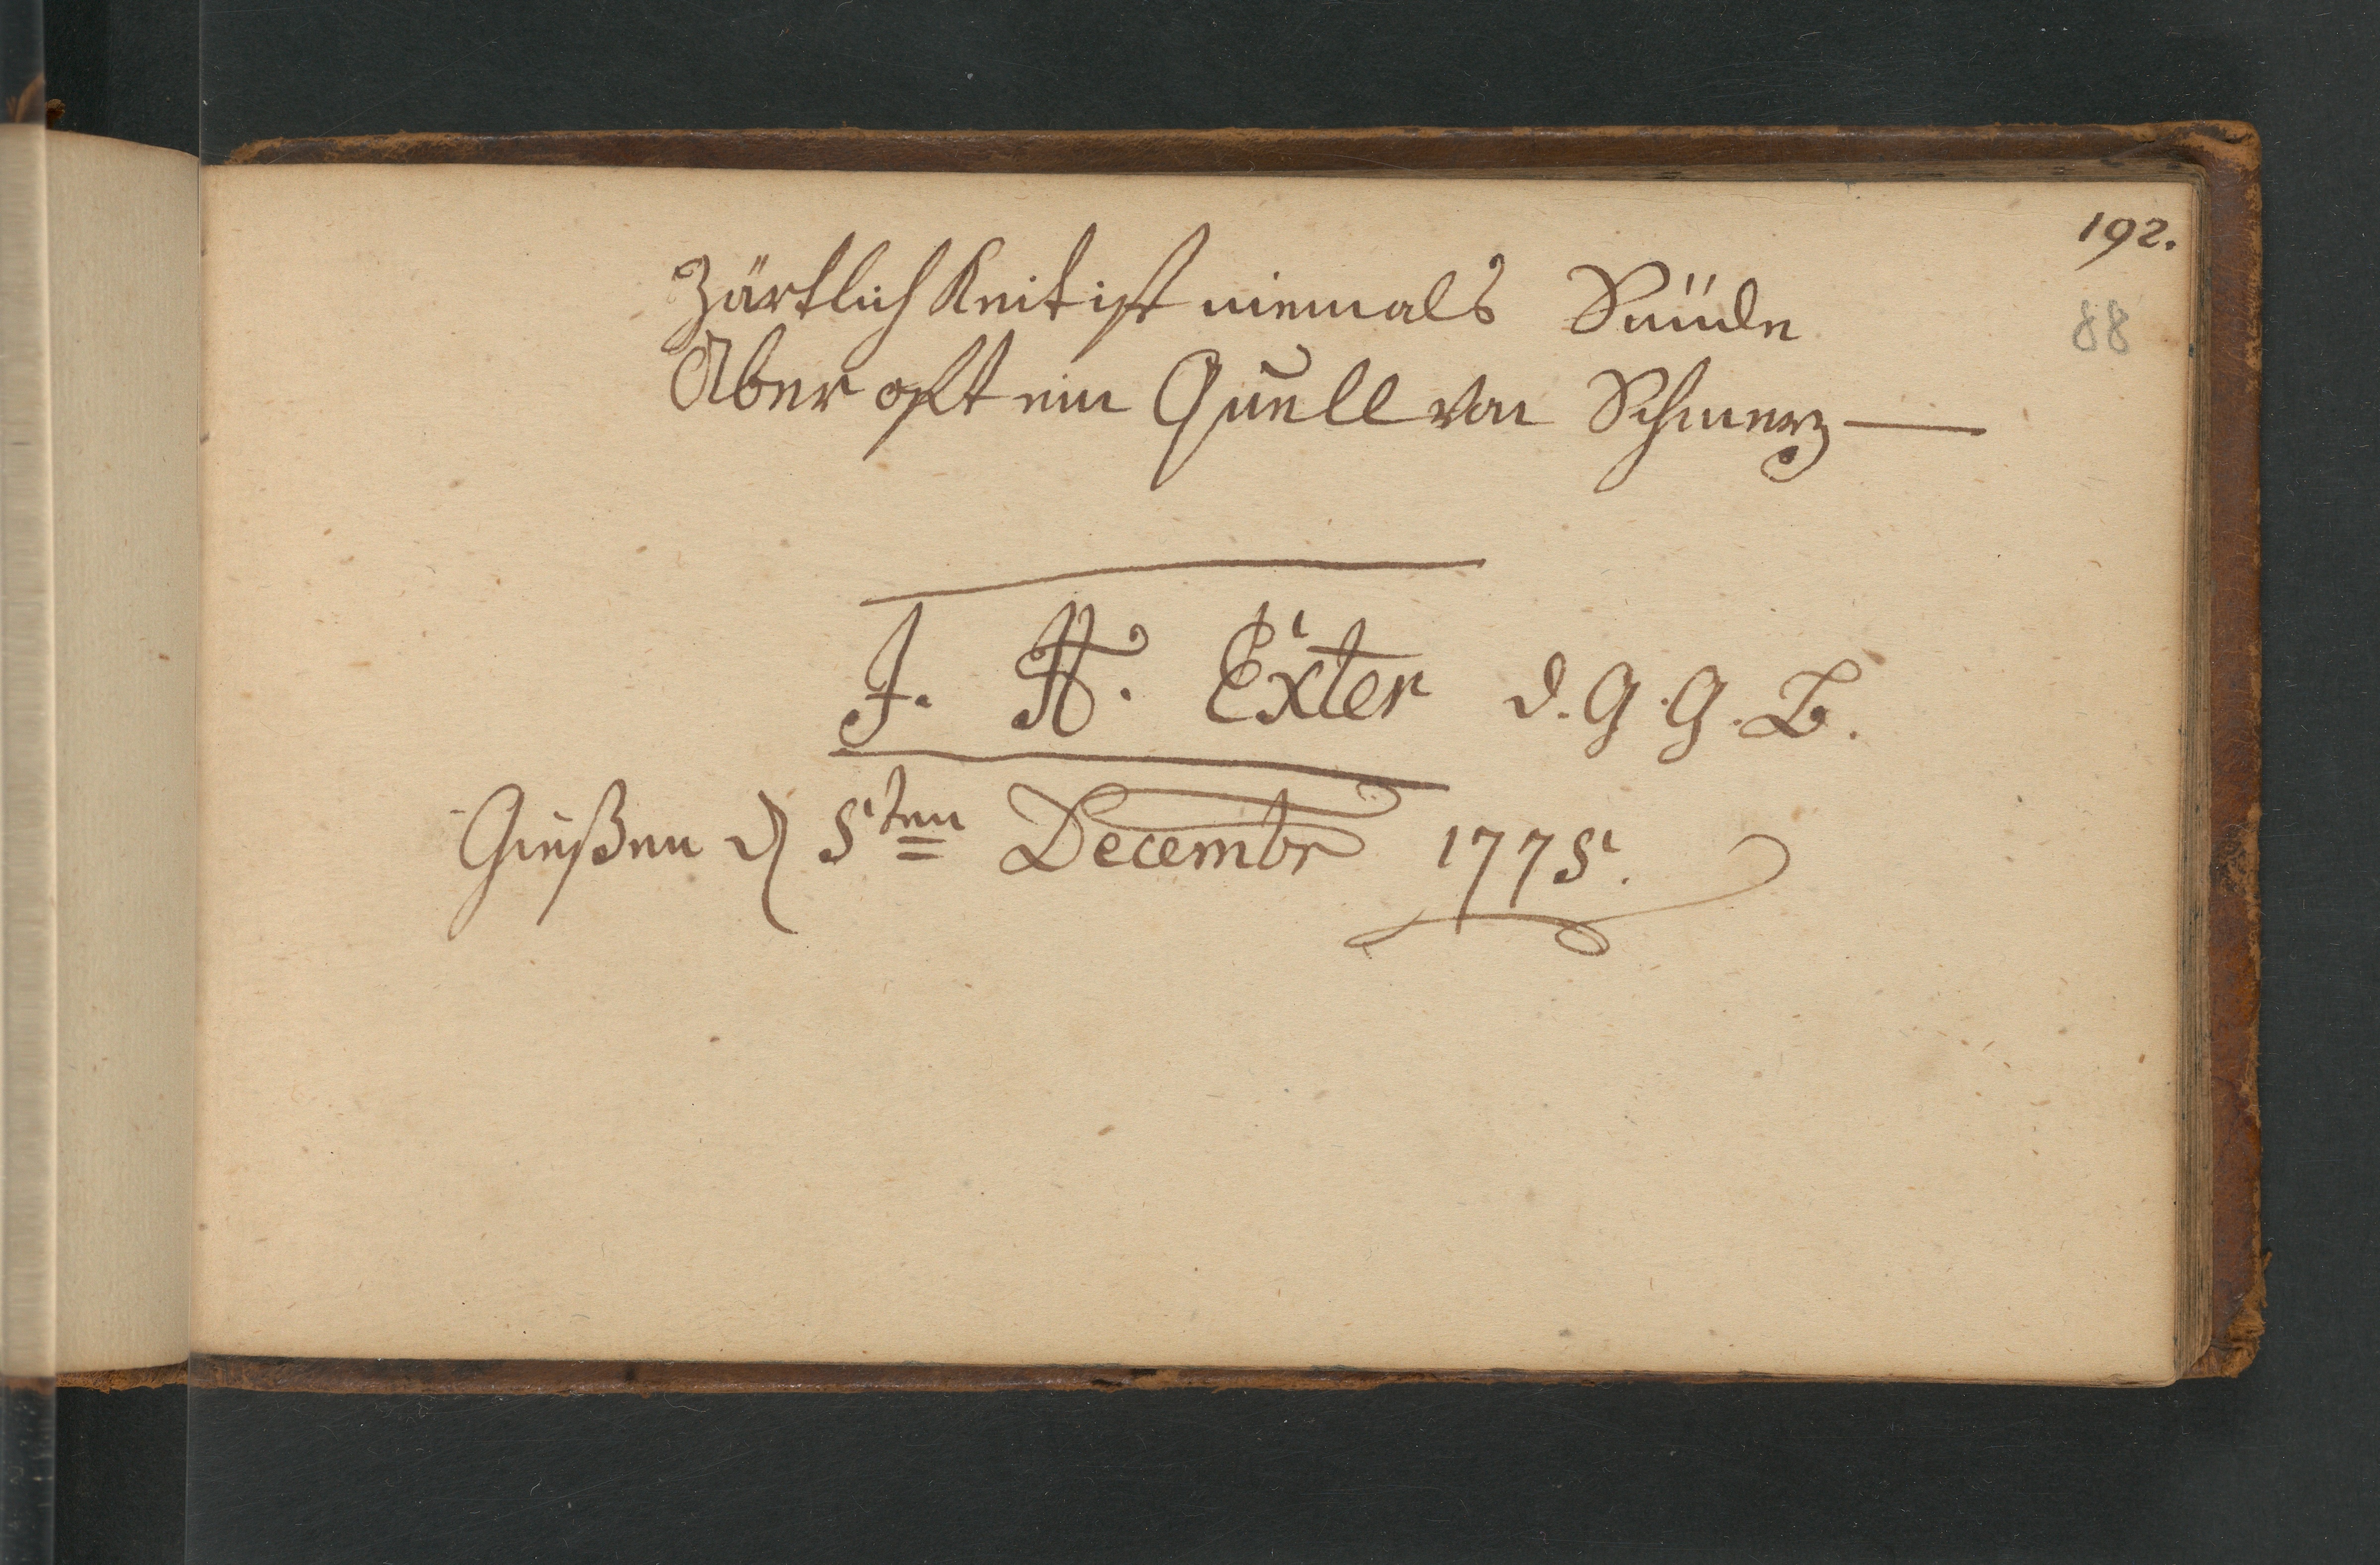 192.
88
Zärtlichkeit ist niemals Sünde
Aber oft ein Quell von Schmerz —
J. H. Exter d. G. G. B.
Gießen d 5ten Decembr 1775.